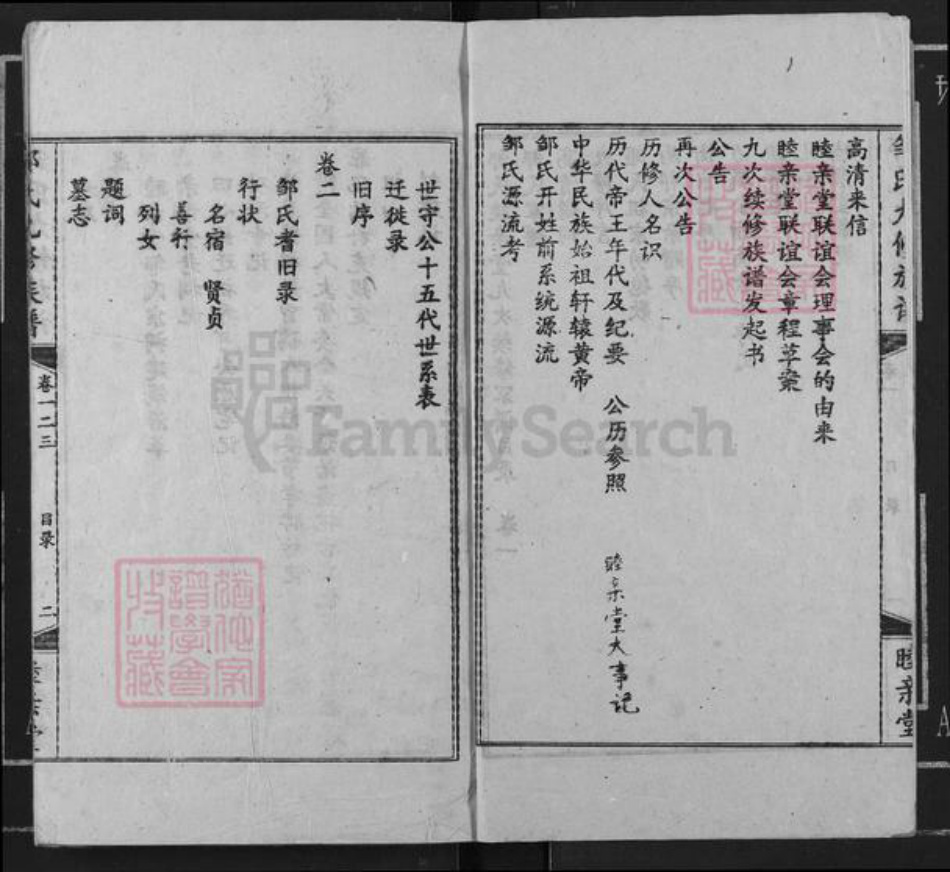 邹氏九修族谱
睦亲堂
高清来信
睦亲堂联谊会理事会的由来
睦亲堂联谊会章程草案
九次续修族谱发起书
公告
再次公告
历修人名识
历代帝王年代及纪要 公历参照 睦亲堂大事记
中华民族始祖轩辕黄帝
邹氏开姓前系统源流
邹氏源流考
世守公十五代世系表
迁徙录
旧序
卷二
邹氏耆旧录
行状
名宿 贤贞
善行
列女
题词
墓志
邹氏九修族谱
卷一二三 目录 二
睦亲堂
FamilySearch